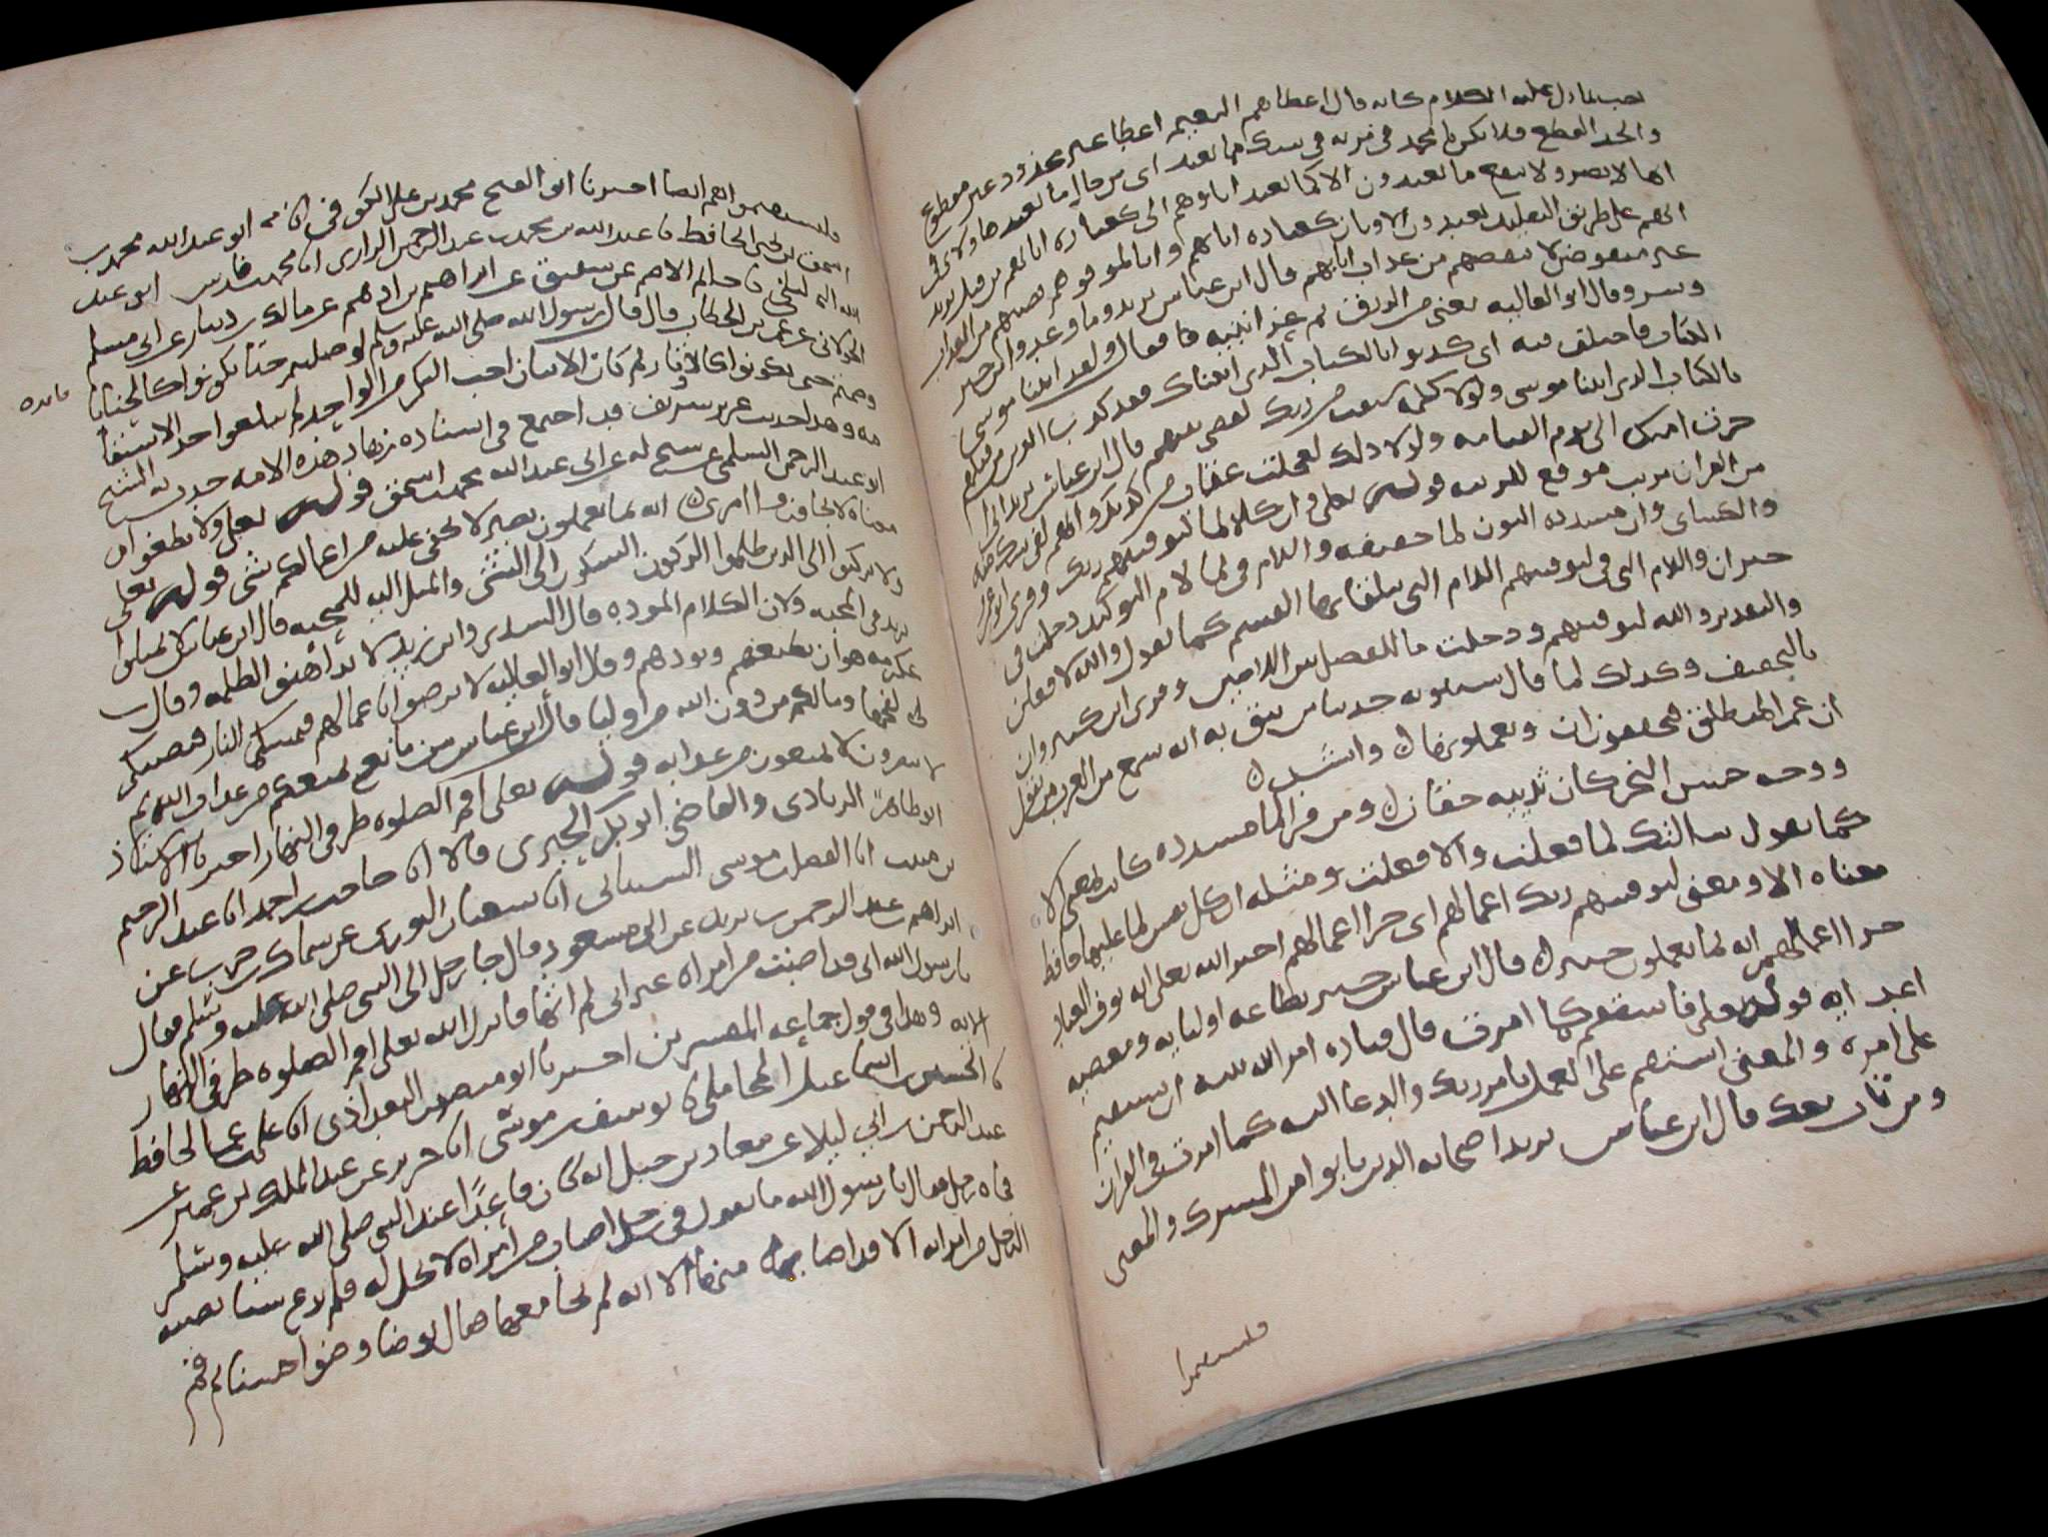 بما دل عليه الكلام كانه قال اعطاهم النعيم اعطا غير مجذوذ غير مقطوع
والجذ القطع فلا تك يا محمد في مرية في شك مما يعبد اي من حال ما يعبد هاولا في
انها لا تضر ولا تنفع ما يعبدون الا كما يعبد اباوهم اي كعبادة ابايهم من قبل يريد
انهم على طريق التقليد يعبدون الاوثان كعبادة ابايهم وانا لموفوهم نصيبهم من العذاب
غير منقوص لا ننقصهم من عذاب ابايهم قال ابن عباس يريد ما وعدوا من خير
وشر وقال ابو العاليه يعني من الرزق ثم عزى نبيه فقال ولقد اتينا موسى
الكتاب فاختلف فيه اي كذبوا بالكتاب الذي اتيناك فقد كذب الذين من قبلهم
بالكتاب الذي اتينا موسى ولولا كلمة سبقت من ربك لقضي بينهم قال ابن عباس يريد اني
اخرت امتك الى يوم القيامه ولولا ذلك لعجلت عقاب من كذبك وانهم لفي شك منه
من القران مريب موقع للريبه قوله تعالى وان كلا لما ليوفينهم ربك وقرى ابو عمرو
والكساى وان مشددة النون لما خفيفه واللام في لما لام التوكيد دخلت في
خبر ان واللام التي في ليوفينهم اللام التي يتلقا بها القسم كما تقول والله لافعلن
والتقدير والله ليوفينهم ودخلت ما للفصل بين اللامين وقرى ابن كثير وان
بالتخفيف وكذلك لما قال سيبويه حدثنا من يثق به انه سمع من العرب من يقول
ان عمرا لمنطلق فيخففون ان ويعملونها وانشد
ووجه حسن النحر كان ثدييه حقان ومن قرا لما مشدده كانت بمعنى الا
كما تقول سالتك لما فعلت والا فعلت ومثله ان كل نفس لما عليها حافظ
معناه الا ومعنى ليوفينهم ربك اعمالهم اي جزا اعمالهم اخبر الله تعالى انه يوفي العباد
جزا اعمالهم انه بما يعملون خبير قال ابن عباس خبير بطاعه اوليايه ومعصيه
اعدايه قوله تعالى فاستقم كما امرت قال قتاده امر الله نبيه ان يستقيم
على امره والمعنى استقم على العمل بامر ربك والدعا اليه كما امرت في القران
ومن تاب معك قال ابن عباس يريد اصحابه الذين تابوا من الشرك والمعنى
فليستقيموا
فليستقيموا هم ايضا اخبرنا ابو الفتح محمد بن علي الكوفي انا ابو عبد الله محمد بن
اسحق بن الحافظ نا عبد الله بن محمد بن عبد الرحمن الرازي انا محمد بن فارس ابو عبد
الله البلخي نا حاتم الاصم عن شقيق عن ابراهيم بن ادهم عن مالك بن دينار عن ابي مسلم
الخولاني عن عمر بن الخطاب قال قال رسول الله صلى الله عليه وسلم لو صليتم حتى تكونوا كالحنايا
وصمتم حتى تكونوا كالاوتار ثم كان الاثنان احب اليكم من الواحد لم تبلغوا حد الاستقا
فايده
مه وهذا حديث عزيز شريف قد اجتمع في اسناده زهاد هذه الامه حدث به الشيخ
ابو عبد الرحمن السلمي عن شيخ له عن ابي عبد الله محمد بن اسحق قوله تعالى ولا تطغوا
معناه لا تجاوزوا امري انه بما تعملون بصير لا تخفى عليه من اعمالكم شي قوله تعالى
ولا تركنوا الى الذين ظلموا الركون السكون الى الشي والميل اليه للمحبه قال ابن عباس لا تميلوا
يريد في المحبه ولين الكلام والموده قال السدي وابن زيد لا تداهنوا الظلمه وقال
عكرمه هو ان يطيعهم ويودهم وقال ابو العاليه لا ترضوا باعمالهم فتمسكم النار فتصيبكم
لفحها وما لكم من دون الله من اوليا قال ابن عباس من مانع يمنعكم من عذاب الله ثم
لا تنصرون لا تمنعون من عذابه قوله تعالى اقم الصلوه طرفي النهار اخبرنا الاستاذ
ابو طاهر الزيادي والقاضي ابو بكر الحيري قالا انا حاجب بن احمد انا عبد الرحيم
بن منيب انا الفضل بن موسى السيناني انا سفيان الثوري عن سماك بن حرب عن
ابراهيم عن عبد الرحمن بن يزيد عن ابن مسعود قال جا رجل الى النبي صلى الله عليه وسلم فقال
يا رسول الله اني قد اصبت من امراه غير اني لم اتها فانزل الله تعالى اقم الصلوه طرفي النهار
الايه وهذا في قول جماعه المفسرين اخبرنا ابو منصور البغداذي انا علي بن عمر الحافظ
نا الحسين بن اسماعيل المحاملي نا يوسف بن موسى انا جرير عن عبد الملك بن عمير عن
عبد الرحمن بن ابي ليلى عن معاذ بن جبل انه كان قاعدا عند النبي صلى الله عليه وسلم
فجاه رجل فقال يا رسول الله ما تقول في رجل اصاب من امراه لا تحل له فلم يدع شيئا يصيبه
الرجل من امراته الا قد اصابه منها الا انه لم يجامعها فقال توضا وضوا حسنا ثم قم